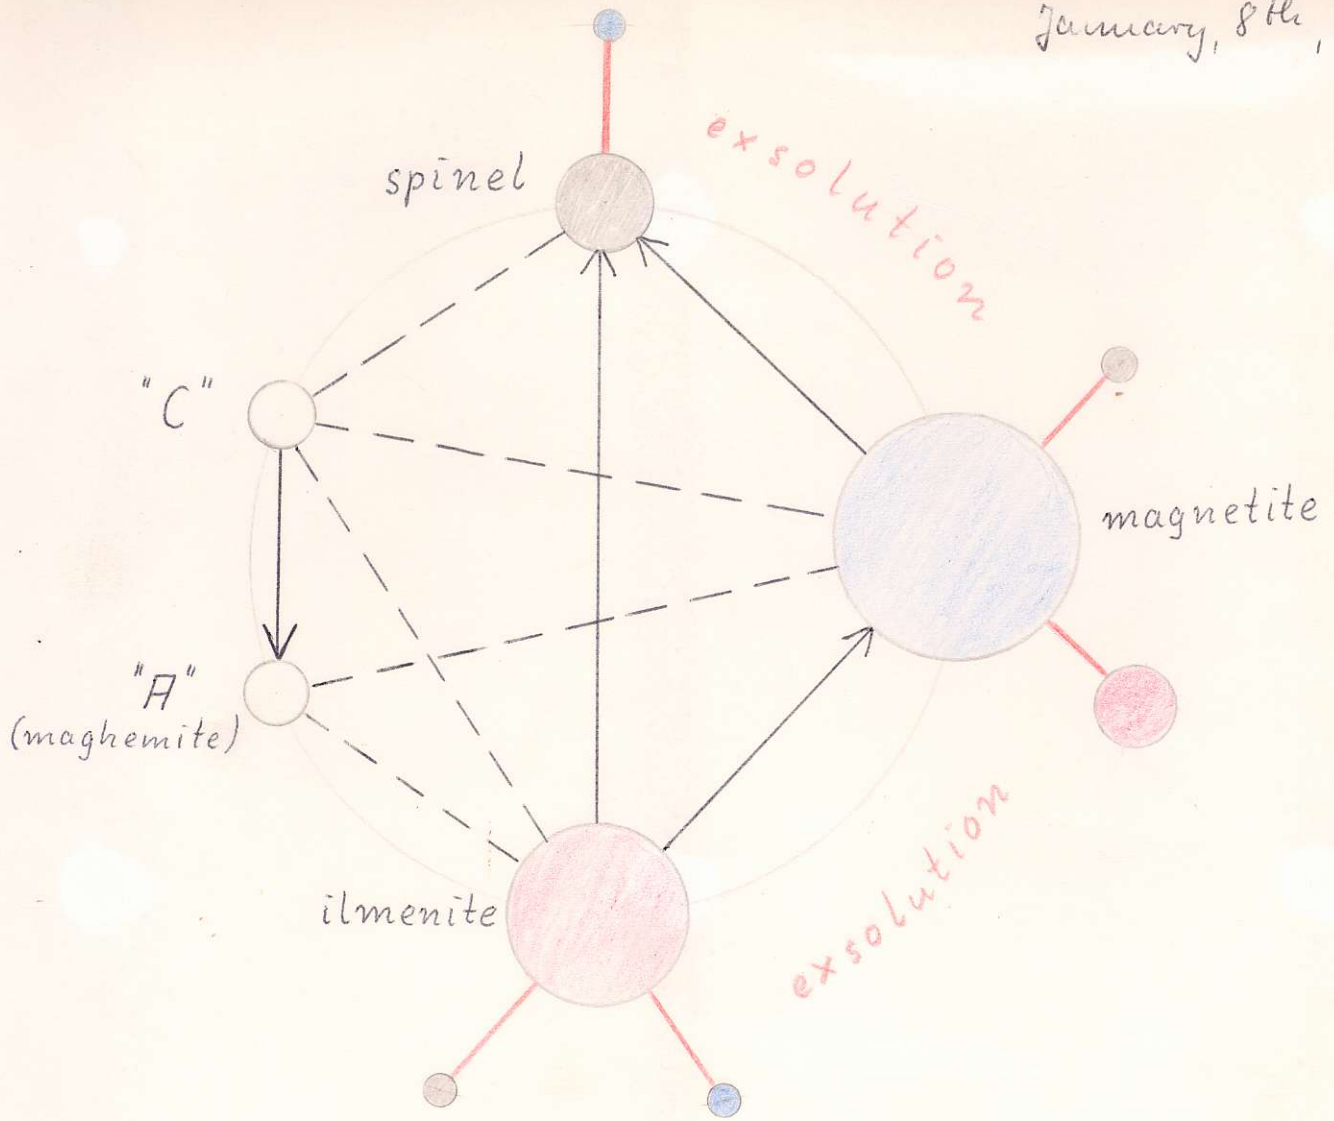 January, 8th,
exsolution
spinel
"C"
magnetite
"A"
(maghemite)
ilmenite
exsolution